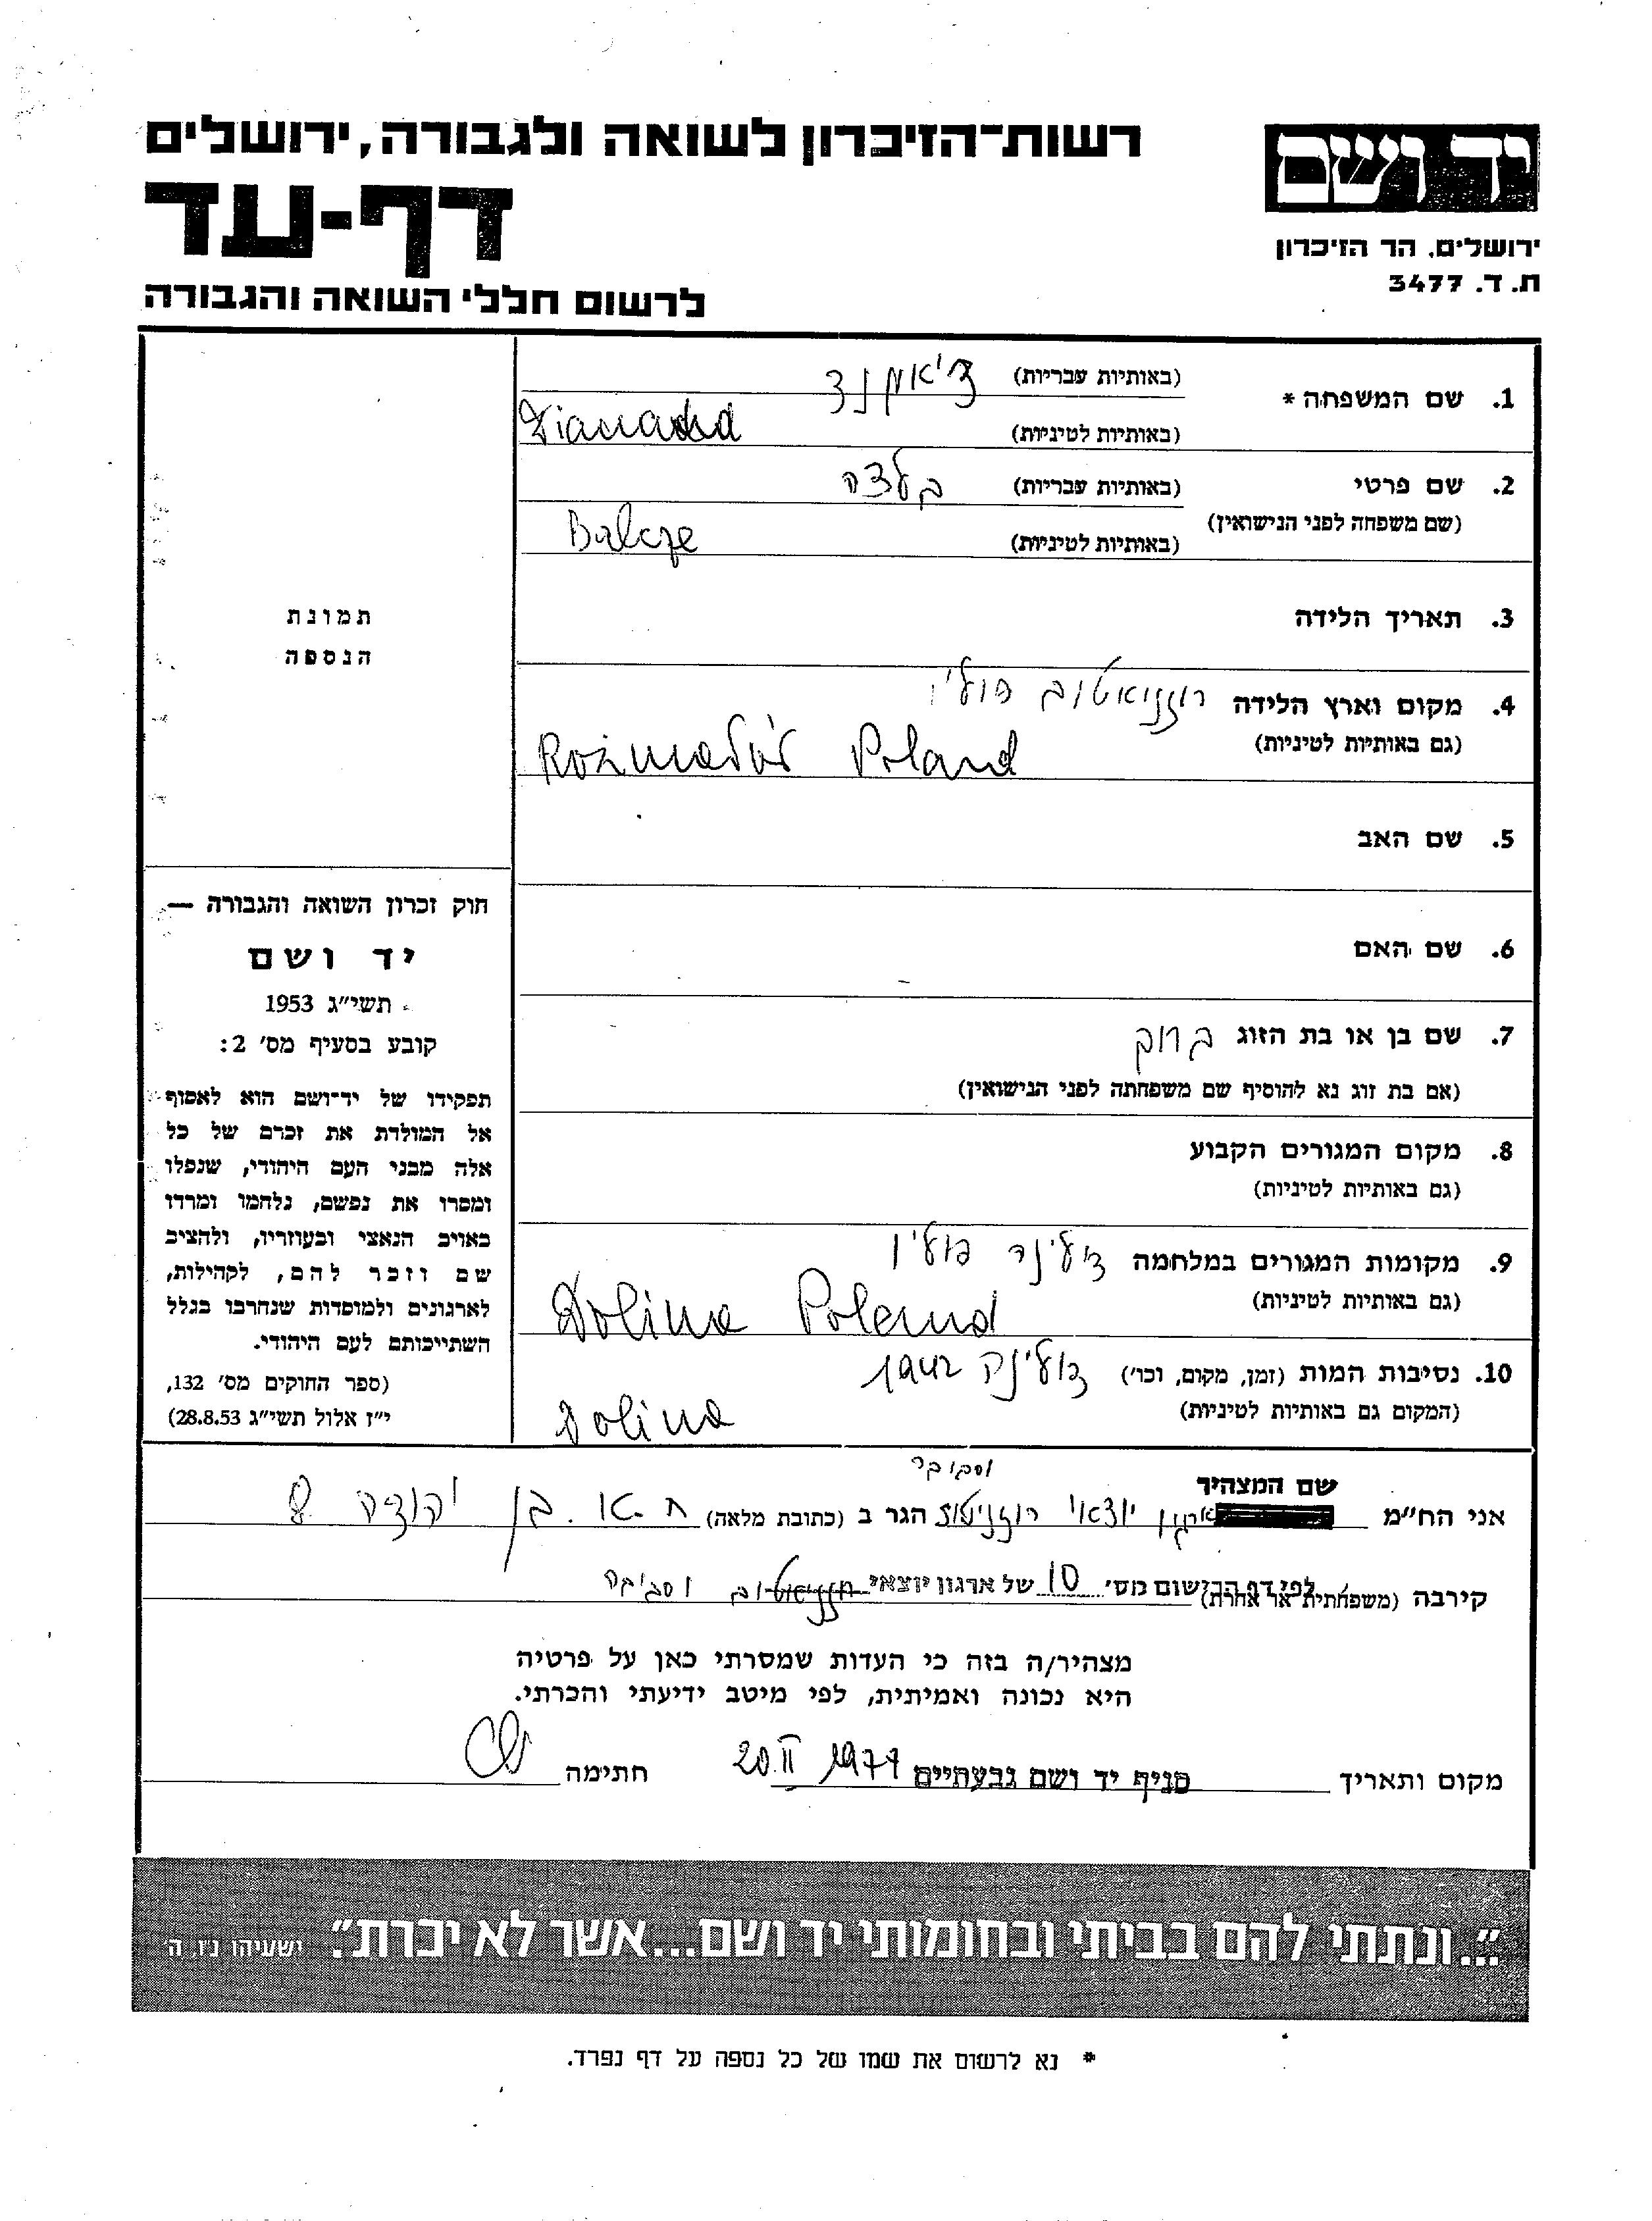 רשות־הזיכרון לשואה ולגבורה, ירושלים
דף-עד
לרשום חללי השואה והגבורה
יד ושם
ירושלים, הר הזיכרון
ת. ד. 3477
1. שם המשפחה * (באותיות עבריות) דיאמנד
(באותיות לטיניות) Diamand
2. שם פרטי (באותיות עבריות) בלצה
(שם משפחה לפני הנישואין) (באותיות לטיניות) Balcze
3. תאריך הלידה
4. מקום וארץ הלידה רוזניאטוב פולין
(גם באותיות לטיניות) Poland
5. שם האב
6. שם האם
7. שם בן או בת הזוג ברוך
(אם בת זוג נא להוסיף שם משפחתה לפני הנישואין)
8. מקום המגורים הקבוע
(גם באותיות לטיניות)
9. מקומות המגורים במלחמה דולינה פולין
(גם באותיות לטיניות) Dolina Poland
10. נסיבות המות (זמן, מקום, וכו') דולינה 1942
(המקום גם באותיות לטיניות) Dolina
תמונת
הנספה
חוק זכרון השואה והגבורה —
יד ושם
תשי״ג 1953
קובע בסעיף מס׳ 2:
תפקידו של יד־ושם הוא לאסוף
אל המולדת את זכרם של כל
אלה מבני העם היהודי, שנפלו
ומסרו את נפשם, נלחמו ומרדו
באויב הנאצי ובעוזריו, ולהציב
שם וזכר להם, לקהילות,
לארגונים ולמוסדות שנחרבו בגלל
השתייכותם לעם היהודי.
(ספר החוקים מס׳ 132,
י״ז אלול תשי״ג 28.8.53)
שם המצהיר
וסביבה
אני הח״מ ארגון יוצאי רוזניטוב הגר ב (כתובת מלאה) ת.א. בן יהודה 8
לפי דף הרישום מס׳ 10 של ארגון יוצאי רוזניאטוב וסביבה
קירבה (משפחתית או אחרת)
מצהיר/ה בזה כי העדות שמסרתי כאן על פרטיה
היא נכונה ואמיתית, לפי מיטב ידיעתי והכרתי.
מקום ותאריך סניף יד ושם גבעתיים 20.II 1977 חתימה
״...ונתתי להם בביתי ובחומותי יד ושם...אשר לא יכרת״. ישעיהו נ״ו, ה׳
* נא לרשום את שמו של כל נספה על דף נפרד.